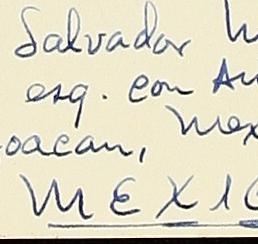 Salvador
esq. con Au
oacan, Mex
MEXIC